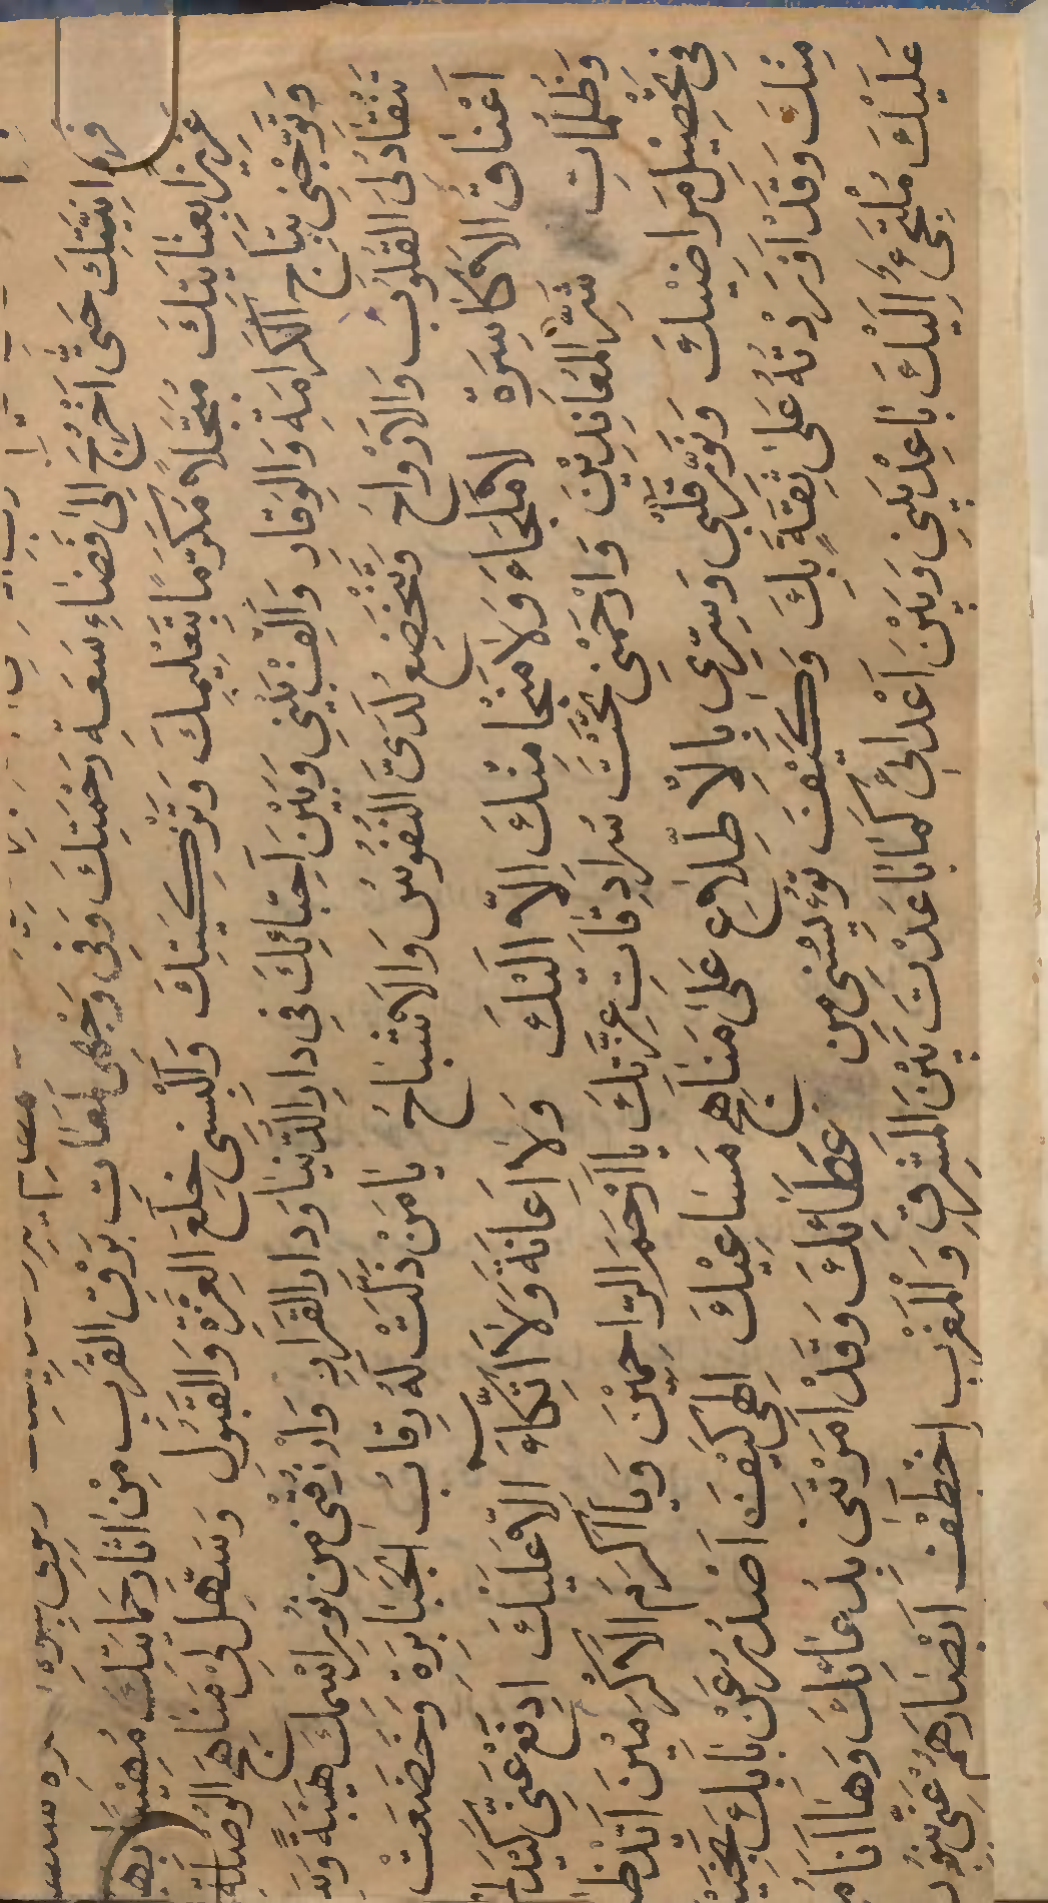 اِنِّيَّتِكَ حَتّٰى اَخْرُجَ اِلٰى فَضَاءِ سَعَةِ رَحْمَتِكَ وَفِى وَجْهِى لَمَعَاتُ بَرْقِ الْقُرْبِ مِنْ اٰثَارِ حِمَايَتِكَ مُهِيْبًا بِهَا
عَزِيزًا بِعِنَايَتِكَ مُبَجَّلًا مُكَرَّمًا بِتَعْلِيمِكَ وَتَزْكِيَتِكَ وَاَلْبِسْنِى خِلَعَ الْعِزَّةِ وَالْقَبُولِ وَسَهِّلْ لِى مَنَاهِجَ الْوُصْلَةِ
وَتَوِّجْنِى بِتَاجِ الْكَرَامَةِ وَالْوِقَارِ وَاَلِّفْ بَيْنِى وَبَيْنَ اَحِبَّائِكَ فِى دَارِ الدُّنْيَا وَدَارِ الْقَرَارِ وَارْزُقْنِى مِنْ نُورِ اسْمِكَ هَيْبَةً
تَنْقَادُ لِىَ الْقُلُوبُ وَالْاَرْوَاحُ وَتَخْضَعُ لَدَىَّ النُّفُوسُ وَالْاَشْبَاحُ يَا مَنْ ذَلَّتْ لَهُ رِقَابُ الْجَبَابِرَةِ وَخَضَعَتْ
اَعْنَاقُ الْاَكَاسِرَةِ لَا مَلْجَاءَ وَلَا مَنْجَا مِنْكَ اِلَّا اِلَيْكَ وَلَا اِعَانَةَ وَلَا اتِّكَاءَ اِلَّا عَلَيْكَ ادْفَعْ عَنِّى كَيْدَ
وَظُلُمَاتِ شَرِّ الْمُعَانِدِيْنَ وَارْحَمْنِى تَحْتَ سُرَادِقَاتِ عِزَّتِكَ يَا اَرْحَمَ الرَّاحِمِيْنَ وَيَا اَكْرَمَ الْاَكْرَمِيْنَ
فِى تَحْصِيْلِ مَرَاضِيْكَ وَنَوِّرْ قَلْبِى وَسِرِّى بِالْاِطِّلَاعِ عَلٰى مَنَاهِجِ مَسَاعِيْكَ اِلٰهِى كَيْفَ اَصْدُرُ عَنْ بَابِكَ
مِنْكَ وَقَدْ اَوْرَدْتُهُ عَلٰى ثِقَةٍ بِكَ وَكَيْفَ تُؤْيِسُنِى مِنْ عَطَائِكَ وَقَدْ اَمَرْتَنِى بِدُعَائِكَ وَهَا اَنَا
عَلَيْكَ مُلْتَجِئٌ اِلَيْكَ بَاعِدْ بَيْنِى وَبَيْنَ اَعْدَائِى كَمَا بَاعَدْتَ بَيْنَ الْمَشْرِقِ وَالْمَغْرِبِ اخْطَفْ اَبْصَارَهُمْ عَنِّى بِنُورِ